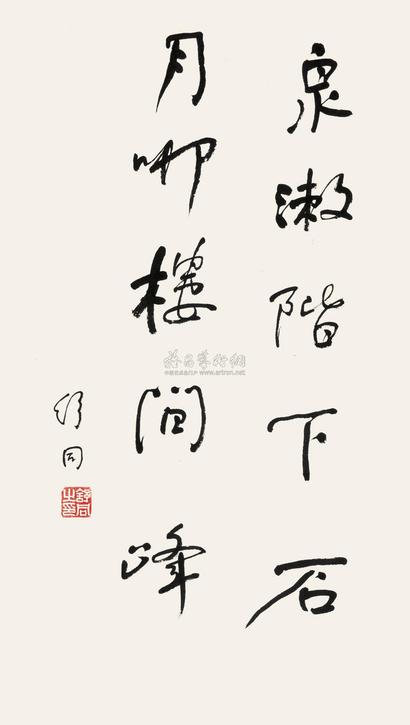 泉漱階下石
月吅樓間峰
舒同
舒同之印
雅昌藝術網
www.artron.net